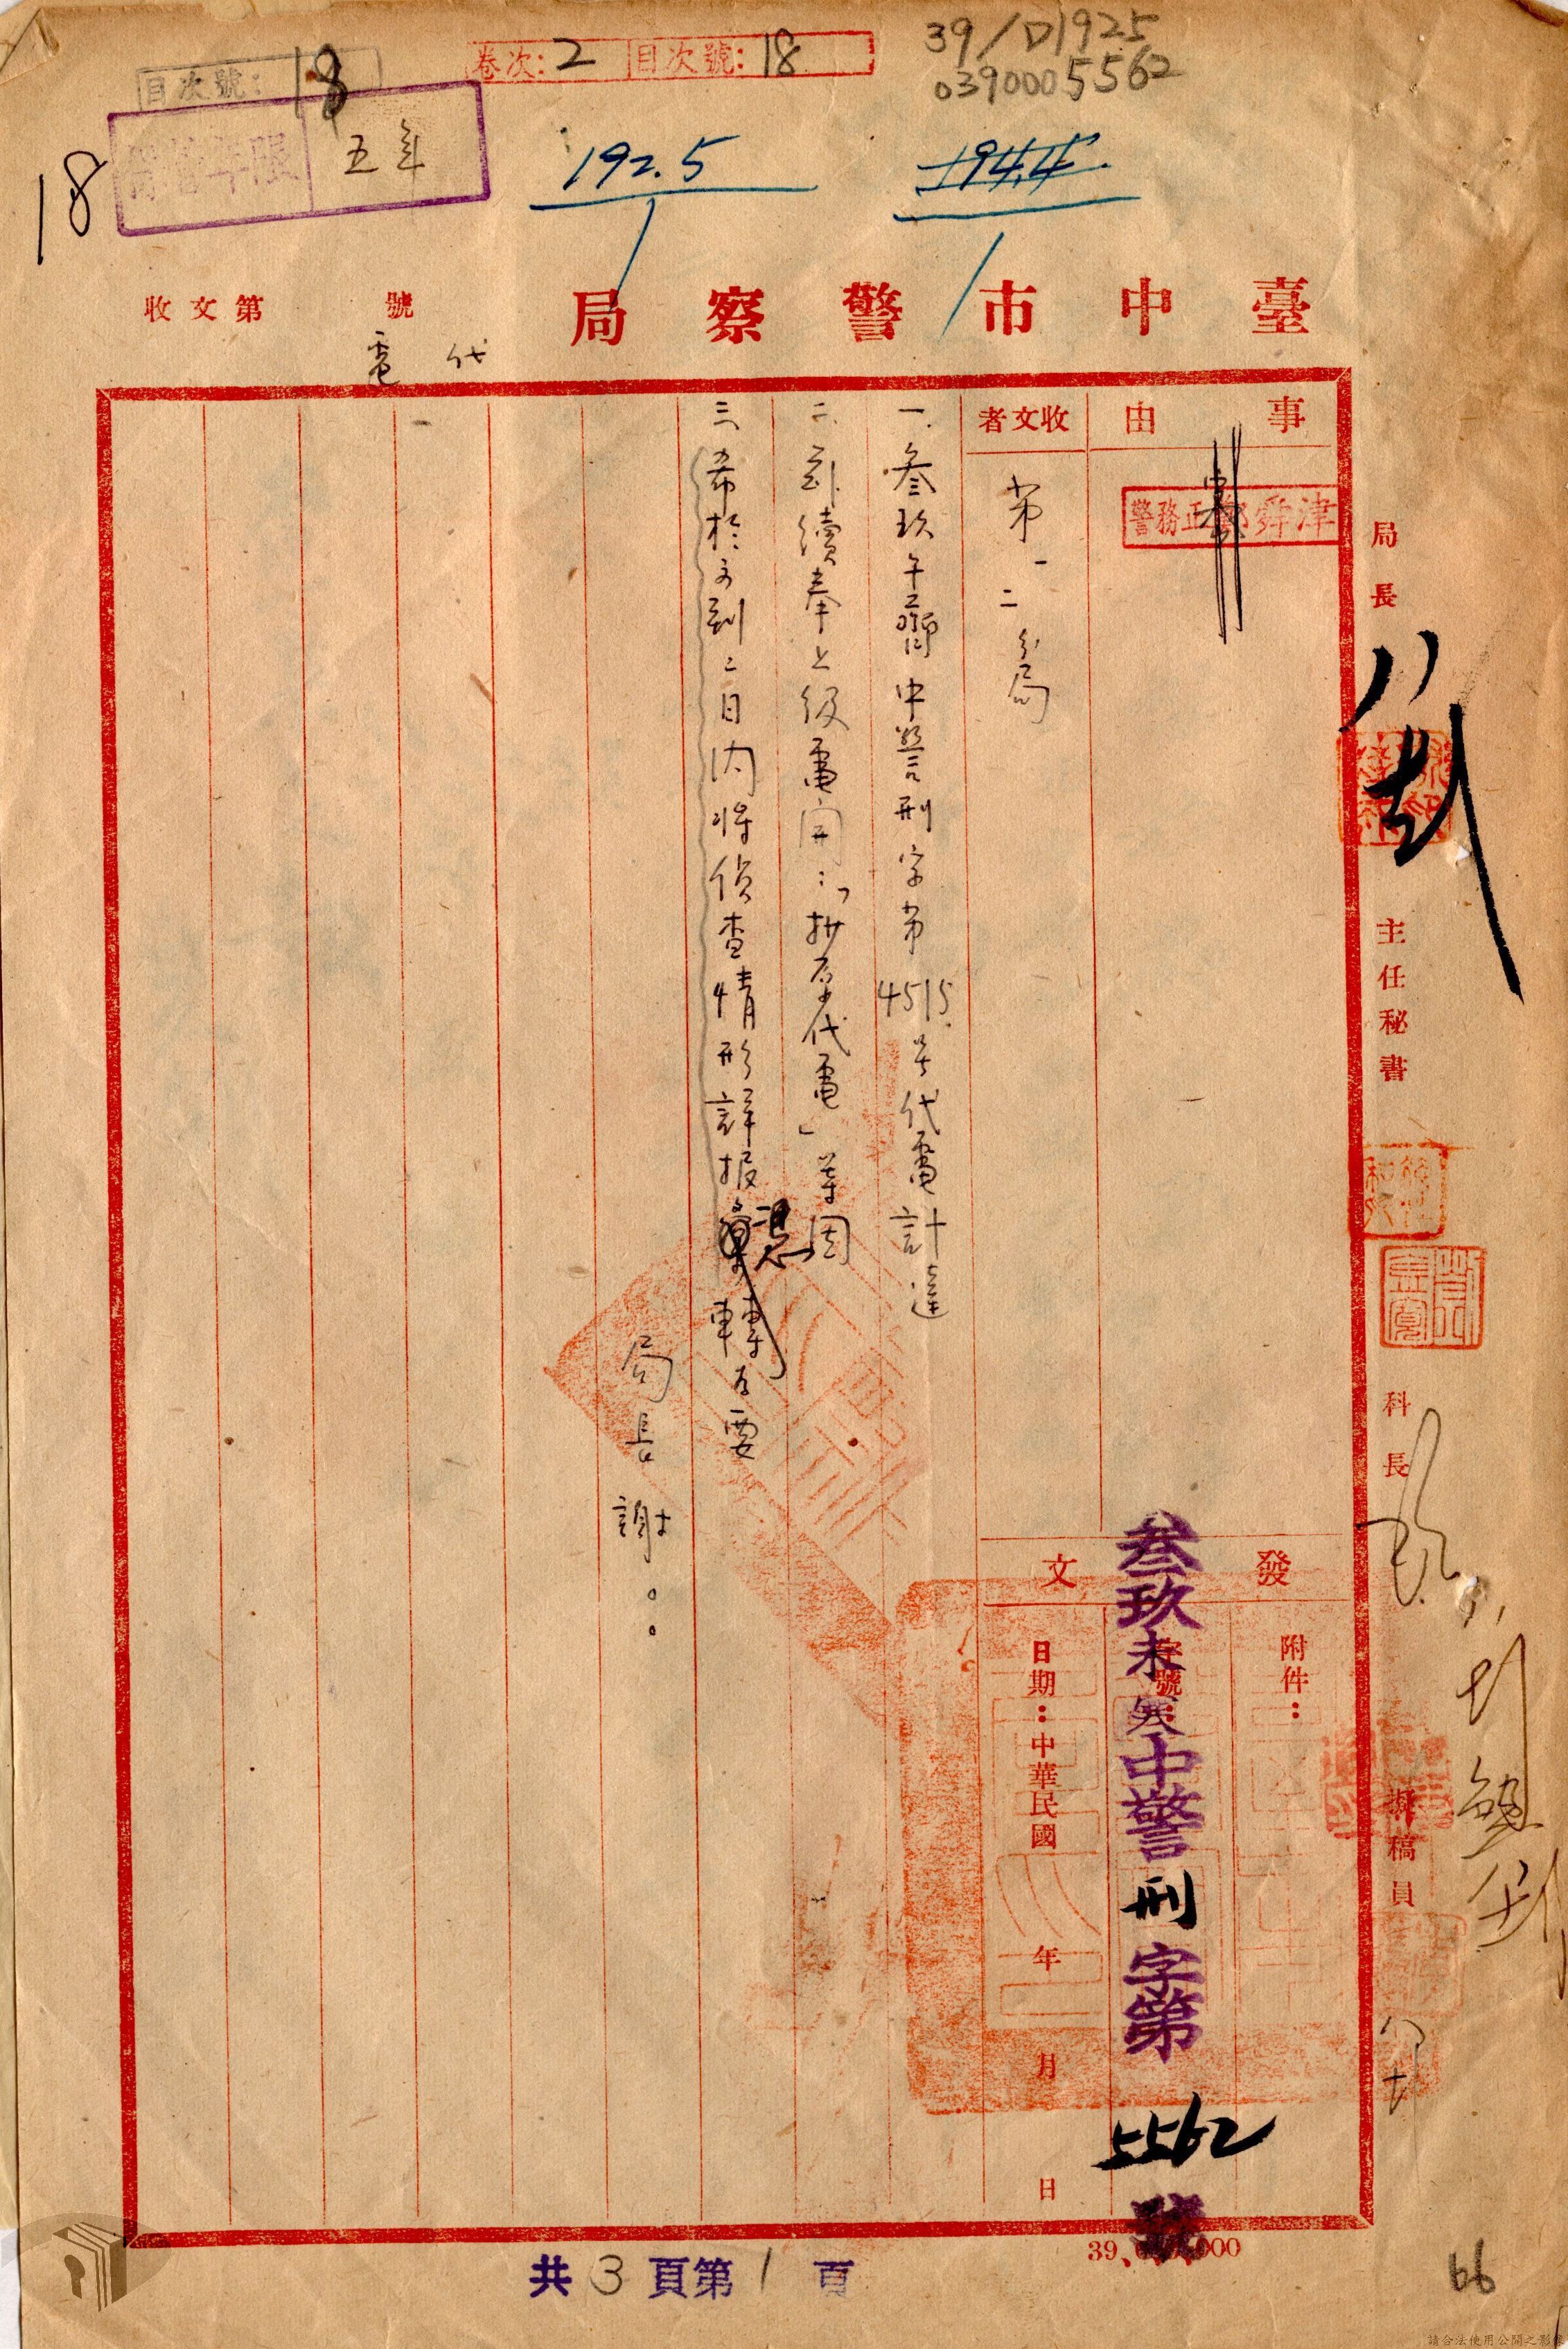 39/D1925
0390005562
卷次：2 目次號：18
目次號：18
18
五年
192.5
194.4
臺中市警察局
代電
收文第 號
事由
警務正鄭舜津
收文者
第一二分局
一、叁玖午齊中警刑字第4515號代電計達
二、茲續奉上級電開：「抄原代電」等因
三、希於文到二日內將偵查情形詳报憑轉為要
局長 謝○○
發文
附件：
字號：
叁玖未寒中警刑字第5562號
日期：中華民國 年 月 日
局長
主任秘書
科長
擬稿員
共3頁第1頁
66
請合法使用公開之影像